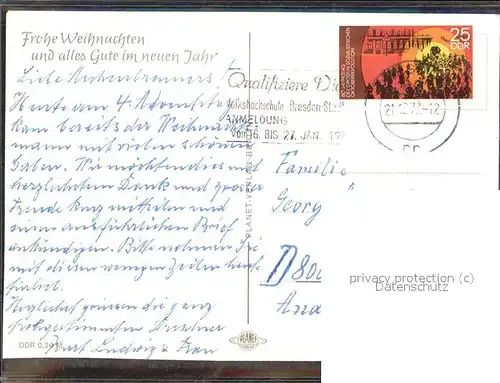 Frohe Weihnachten
und alles Gute im neuen Jahr
Heute am 4. Advent
kam bereits der Weihnachts
mann mit vielen schönen
Gaben. Wir möchten dies mit
herzlichstem Dank und grosser
Freude kurz mitteilen und
einen ausführlichen Brief
ankündigen. Bitte nehmen Sie
mit diesen wenigen Zeilen
Herzlichst grüssen die ganz
Dresdner
Kurt Ludwig & Frau
DDR 0,20 M
PLANET-VERLAG-BERLIN
PLANET
Qualifiziere Di
Volkshochschule Dresden-Sta
ANMELDUNG
vom 16. BIS 27. JAN. 197
25
DDR
21.12.77-12
Familie
Georg
D 80
privacy protection (c)
Datenschutz
Ana